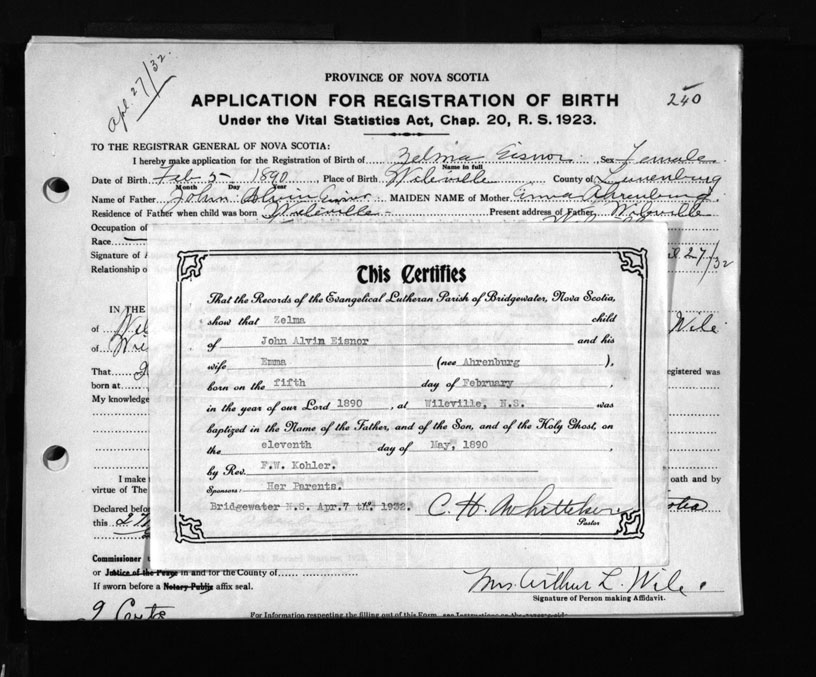 Apl. 27/32.
PROVINCE OF NOVA SCOTIA
APPLICATION FOR REGISTRATION OF BIRTH
240
Under the Vital Statistics Act, Chap. 20, R. S. 1923.
TO THE REGISTRAR GENERAL OF NOVA SCOTIA:
I hereby make application for the Registration of Birth of Zelma Eisnor Sex Female
Name in full
Date of Birth Feb 5 1890 Place of Birth Wileville County of Lunenburg
Month Day Year
Name of Father John Alvin Eisnor MAIDEN NAME of Mother Emma Ahrenburg
Residence of Father when child was born Wileville Present address of Father Wileville
Occupation of
Race
Signature of A 27/32
Relationship o
This Certifies
That the Records of the Evangelical Lutheran Parish of Bridgewater, Nova Scotia,
show that Zelma child
of John Alvin Eisnor and his
wife Emma (nee Ahrenburg ),
born on the fifth day of February ,
in the year of our Lord 1890 , at Wileville, N.S. was
baptized in the Name of the Father, and of the Son, and of the Holy Ghost, on
the eleventh day of May, 1890 ,
by Rev. F.W. Kohler.
Sponsors: Her Parents.
Bridgewater N.S. Apr. 7 th. 1932. C. H. Whitteker
Pastor
IN THE
of Wile
of
That egistered was
born at
My knowledge
I make oath and by
virtue of The
Declared befo
this
Commissioner
or Justice of the Peace in and for the County of
If sworn before a Notary Public affix seal.
Mrs. Arthur L. Wile.
Signature of Person making Affidavit.
For Information respecting the filling out of this Form, see Instructions on the other side.